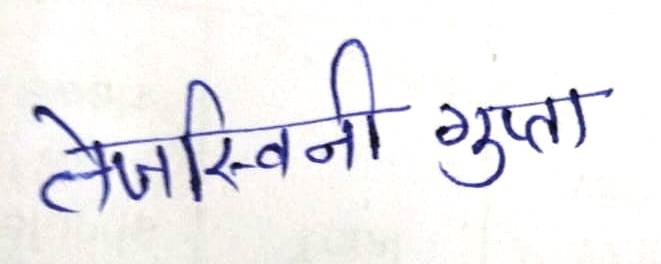 तेजस्विनी गुप्ता